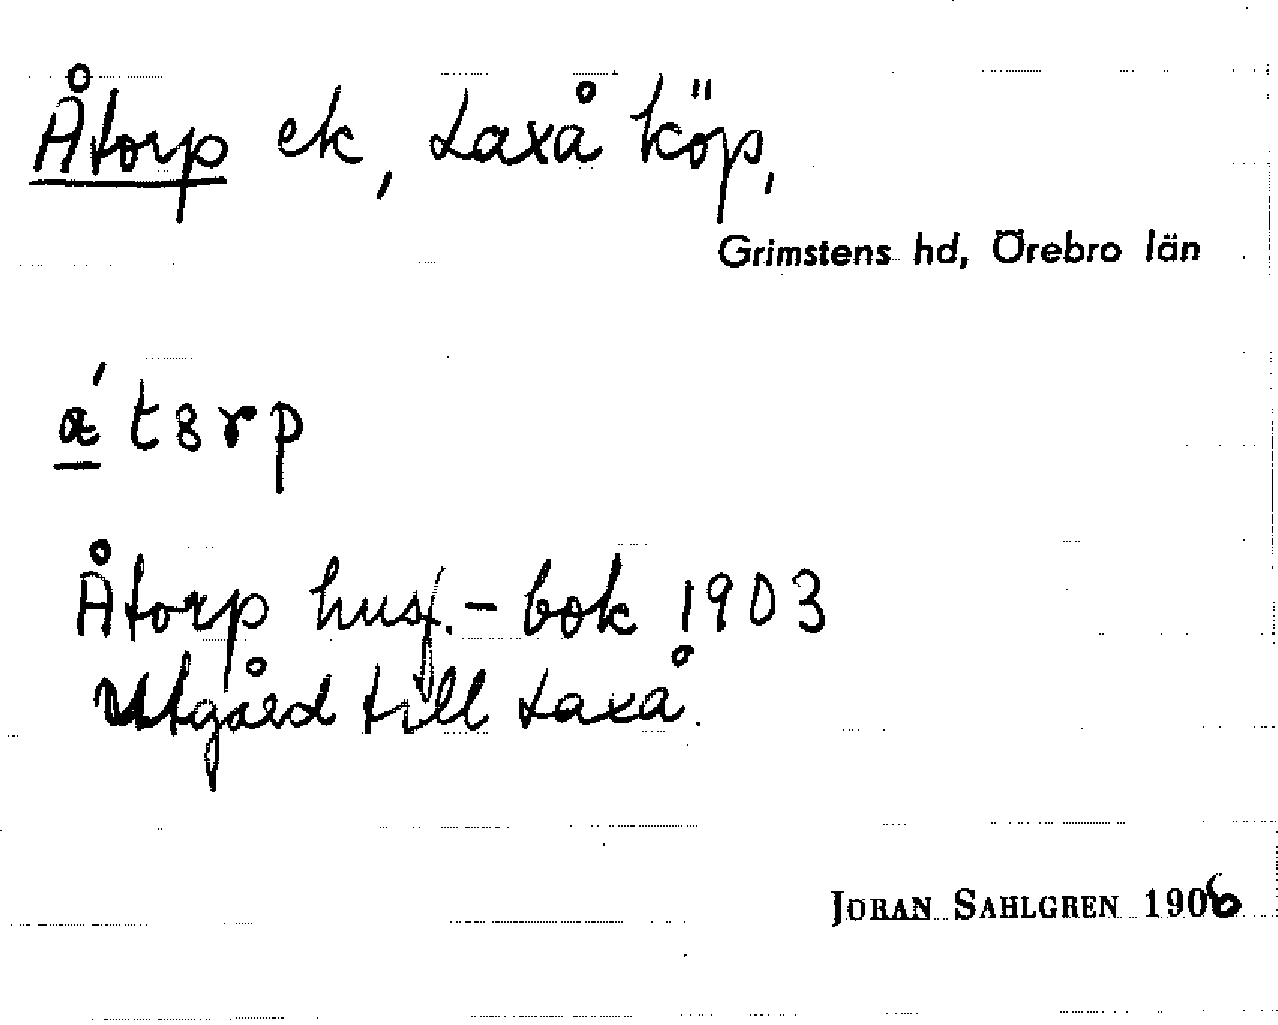 Åtorp ek, Laxå köp,
Grimstens hd, Örebro län
á̱ t 8 r p
Åtorp husf.-bok 1903
Utgård till Laxå.
JÖRAN SAHLGREN 1906